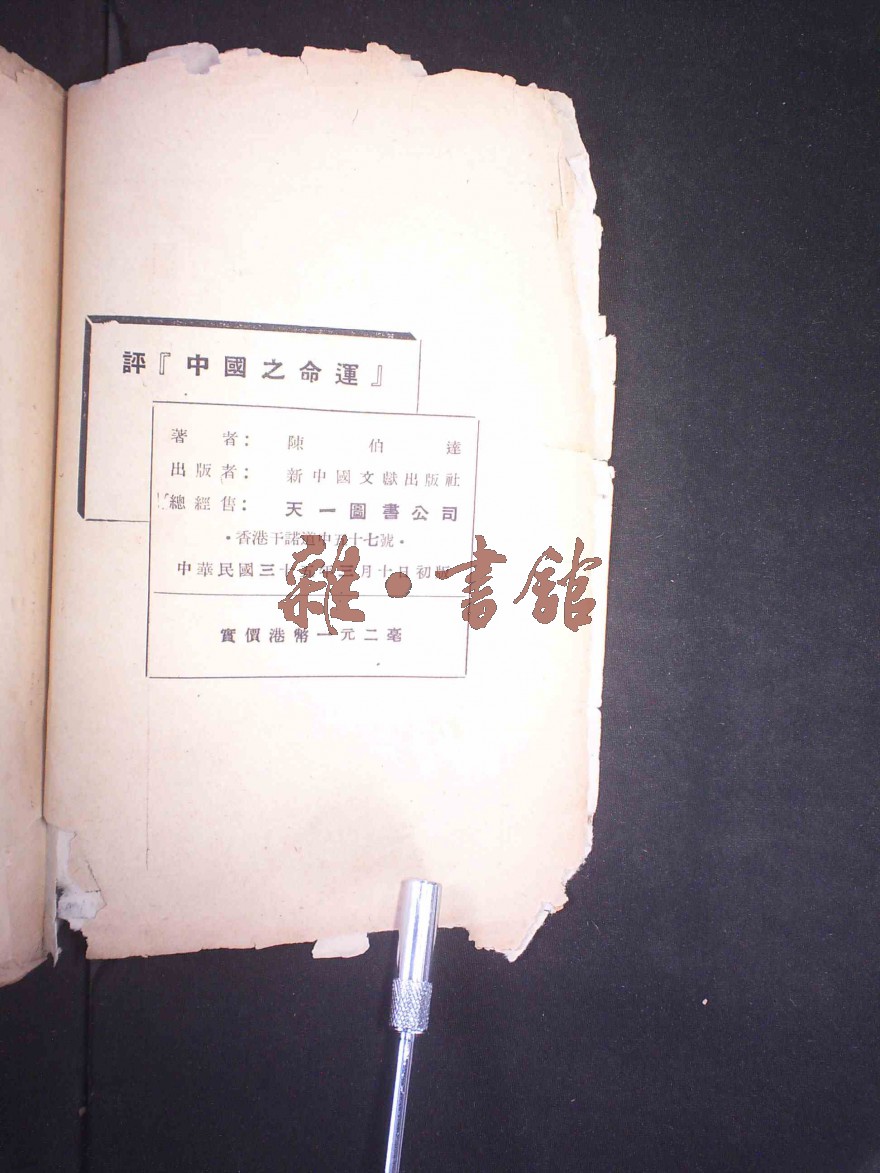 評『中國之命運』
著者：陳伯達
出版者：新中國文獻出版社
總經售：天一圖書公司
·香港干諾道中五十七號·
中華民國三十五年三月十日初版
雜·書館
實價港幣一元二毫